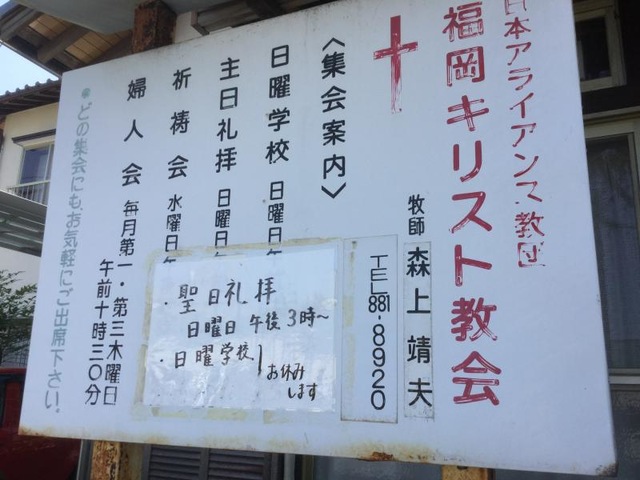 日本アライアンス教団
福岡キリスト教会
牧師 森上靖夫
TEL 881-8920
〈集会案内〉
日曜学校 日曜日午
主日礼拝 日曜日午
祈祷会 水曜日午
婦人会 毎月第一・第三木曜日
午前十時三〇分
●どの集会にもお気軽にご出席下さい。
・聖日礼拝
日曜日 午後3時〜
・日曜学校
お休み
します